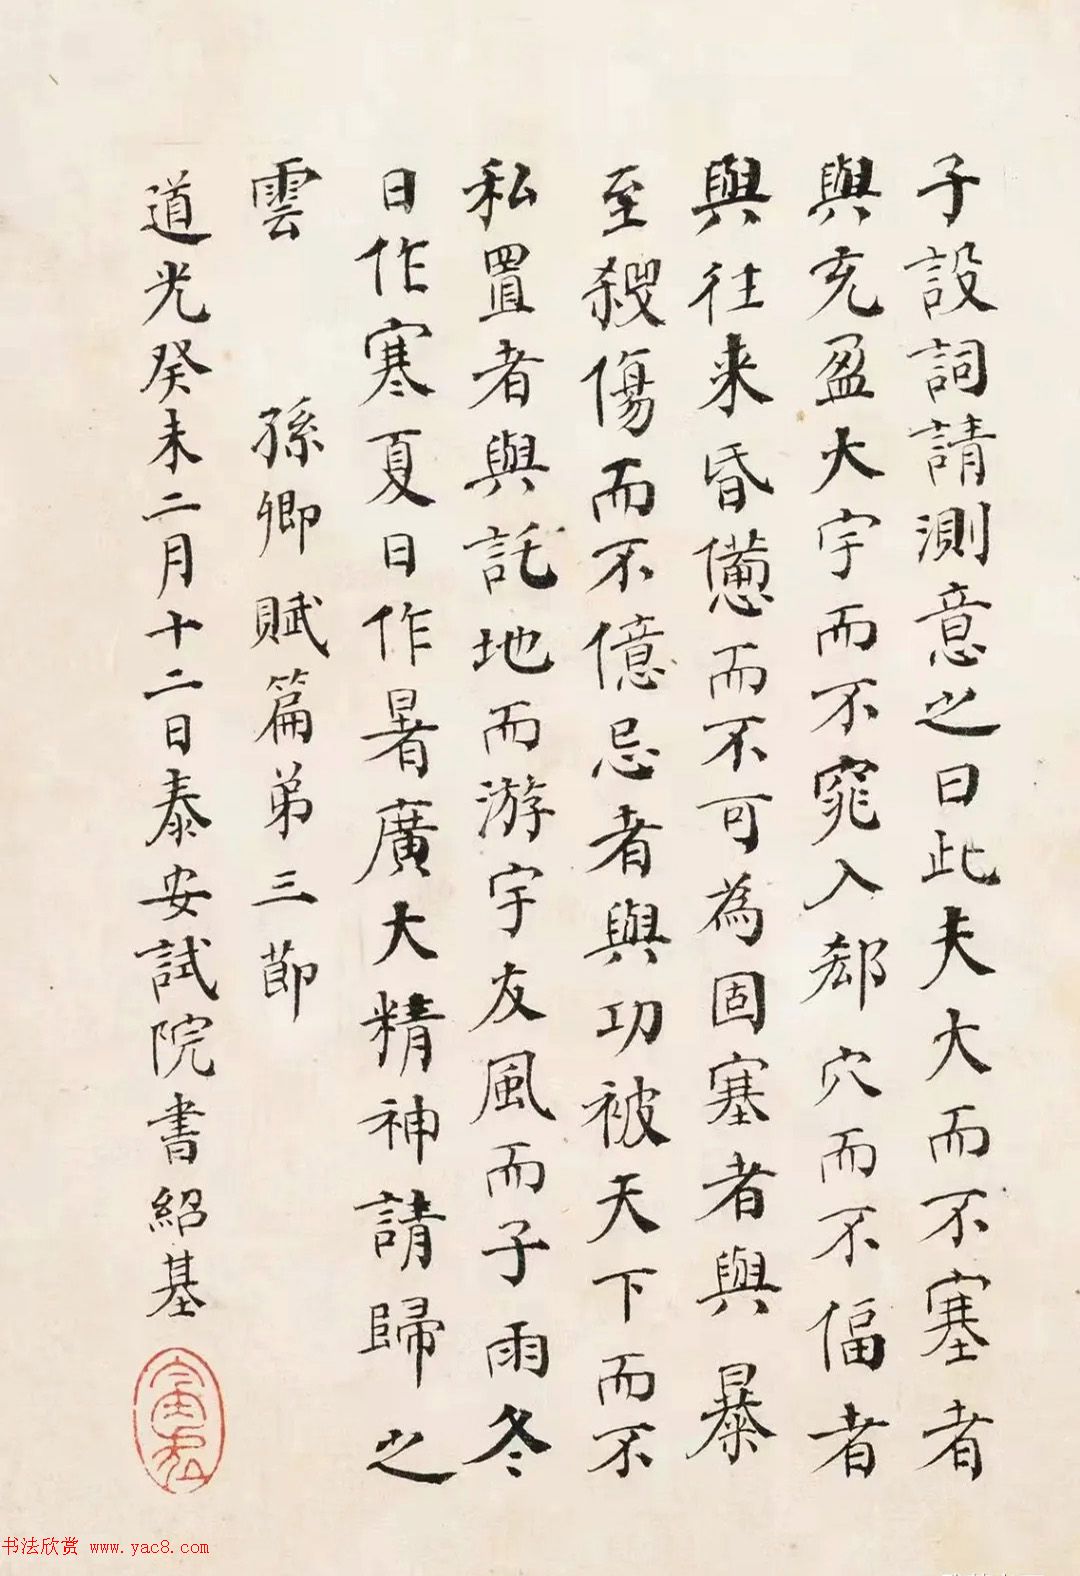 子設詞請測意之曰此夫大而不塞者
與充盈大宇而不窕入郄穴而不偪者
與往来昏憊而不可為固塞者與暴
至殺傷而不億忌者與功被天下而不
私置者與託地而游宇友風而子雨冬
日作寒夏日作暑廣大精神請歸之
雲　孫卿賦篇弟三節
道光癸未二月十二日泰安試院書紹基
书法欣赏 www.yac8.com